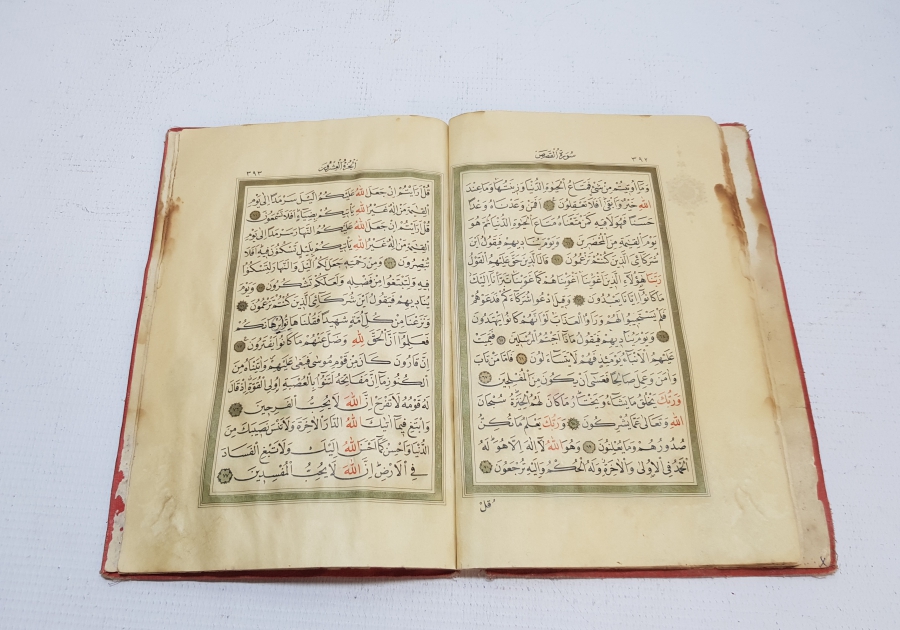 سُورَةُ الْقَصَصِ ٣٩٢
وَمَٓا اُو۫ت۪يتُمْ مِنْ شَيْءٍ فَمَتَاعُ الْحَيٰوةِ الدُّنْيَا وَز۪ينَتُهَا وَمَا عِنْدَ
اللّٰهِ خَيْرٌ وَاَبْقٰى اَفَلَا تَعْقِلُونَ ۝ اَفَمَنْ وَعَدْنَاهُ وَعْدًا
حَسَنًا فَهُوَ لَاق۪يهِ كَمَنْ مَتَّعْنَاهُ مَتَاعَ الْحَيٰوةِ الدُّنْيَا ثُمَّ هُوَ
يَوْمَ الْقِيٰمَةِ مِنَ الْمُحْضَر۪ينَ ۝ وَيَوْمَ يُنَاد۪يهِمْ فَيَقُولُ اَيْنَ
شُرَكَٓائِيَ الَّذ۪ينَ كُنْتُمْ تَزْعُمُونَ ۝ قَالَ الَّذ۪ينَ حَقَّ عَلَيْهِمُ الْقَوْلُ
رَبَّنَا هٰٓؤُ۬لَٓاءِ الَّذ۪ينَ اَغْوَيْنَا اَغْوَيْنَاهُمْ كَمَا غَوَيْنَا تَبَرَّأْنَٓا اِلَيْكَ
مَا كَانُٓوا اِيَّانَا يَعْبُدُونَ ۝ وَق۪يلَ ادْعُوا شُرَكَٓاءَكُمْ فَدَعَوْهُمْ
فَلَمْ يَسْتَج۪يبُوا لَهُمْ وَرَاَوُا الْعَذَابَ لَوْ اَنَّهُمْ كَانُوا يَهْتَدُونَ
۝ وَيَوْمَ يُنَاد۪يهِمْ فَيَقُولُ مَاذَٓا اَجَبْتُمُ الْمُرْسَل۪ينَ ۝ فَعَمِيَتْ
عَلَيْهِمُ الْاَنْبَٓاءُ يَوْمَئِذٍ فَهُمْ لَا يَتَسَٓاءَلُونَ ۝ فَاَمَّا مَنْ تَابَ
وَاٰمَنَ وَعَمِلَ صَالِحًا فَعَسٰٓى اَنْ يَكُونَ مِنَ الْمُفْلِح۪ينَ ۝
وَرَبُّكَ يَخْلُقُ مَا يَشَٓاءُ وَيَخْتَارُ مَا كَانَ لَهُمُ الْخِيَرَةُ سُبْحَانَ
اللّٰهِ وَتَعَالٰى عَمَّا يُشْرِكُونَ ۝ وَرَبُّكَ يَعْلَمُ مَا تُكِنُّ
صُدُورُهُمْ وَمَا يُعْلِنُونَ ۝ وَهُوَ اللّٰهُ لَٓا اِلٰهَ اِلَّا هُوَ لَهُ
الْحَمْدُ فِي الْاُو۫لٰى وَالْاٰخِرَةِ وَلَهُ الْحُكْمُ وَاِلَيْهِ تُرْجَعُونَ ۝
قُلْ
اَلْجُزْءُ الْعِشْرُونَ ٣٩٣
قُلْ اَرَاَيْتُمْ اِنْ جَعَلَ اللّٰهُ عَلَيْكُمُ الَّيْلَ سَرْمَدًا اِلٰى يَوْمِ
الْقِيٰمَةِ مَنْ اِلٰهٌ غَيْرُ اللّٰهِ يَأْت۪يكُمْ بِضِيَٓاءٍ اَفَلَا تَسْمَعُونَ ۝
قُلْ اَرَاَيْتُمْ اِنْ جَعَلَ اللّٰهُ عَلَيْكُمُ النَّهَارَ سَرْمَدًا اِلٰى يَوْمِ
الْقِيٰمَةِ مَنْ اِلٰهٌ غَيْرُ اللّٰهِ يَأْت۪يكُمْ بِلَيْلٍ تَسْكُنُونَ ف۪يهِ اَفَلَا
تُبْصِرُونَ ۝ وَمِنْ رَحْمَتِه۪ جَعَلَ لَكُمُ الَّيْلَ وَالنَّهَارَ لِتَسْكُنُوا
ف۪يهِ وَلِتَبْتَغُوا مِنْ فَضْلِه۪ وَلَعَلَّكُمْ تَشْكُرُونَ ۝ وَيَوْمَ
يُنَاد۪يهِمْ فَيَقُولُ اَيْنَ شُرَكَٓائِيَ الَّذ۪ينَ كُنْتُمْ تَزْعُمُونَ ۝
وَنَزَعْنَا مِنْ كُلِّ اُمَّةٍ شَه۪يدًا فَقُلْنَا هَاتُوا بُرْهَانَكُمْ
فَعَلِمُٓوا اَنَّ الْحَقَّ لِلّٰهِ وَضَلَّ عَنْهُمْ مَا كَانُوا يَفْتَرُونَ ۝
اِنَّ قَارُونَ كَانَ مِنْ قَوْمِ مُوسٰى فَبَغٰى عَلَيْهِمْ وَاٰتَيْنَاهُ مِنَ
الْكُنُوزِ مَٓا اِنَّ مَفَاتِحَهُ لَتَنُٓوأُ بِالْعُصْبَةِ اُو۬لِي الْقُوَّةِ اِذْ قَالَ
لَهُ قَوْمُهُ لَا تَفْرَحْ اِنَّ اللّٰهَ لَا يُحِبُّ الْفَرِح۪ينَ ۝
وَابْتَغِ ف۪يمَٓا اٰتٰيكَ اللّٰهُ الدَّارَ الْاٰخِرَةَ وَلَا تَنْسَ نَص۪يبَكَ مِنَ
الدُّنْيَا وَاَحْسِنْ كَمَٓا اَحْسَنَ اللّٰهُ اِلَيْكَ وَلَا تَبْغِ الْفَسَادَ
فِي الْاَرْضِ اِنَّ اللّٰهَ لَا يُحِبُّ الْمُفْسِد۪ينَ ۝